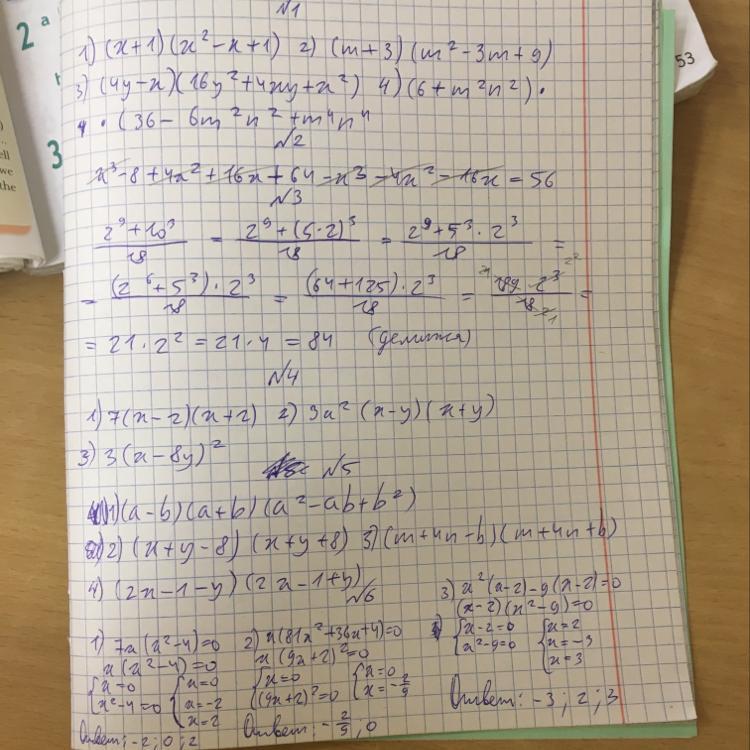 №1
1) (x+1)(x²-x+1) 2) (m+3)(m²-3m+9)
3) (4y-x)(16y²+4xy+x²) 4) (6+m²n²)·
· (36-6m²n²+m⁴n⁴
№2
x³-8+4x²+16x+64-x³-4x²-16x=56
№3
(2⁹+10³)/18 = (2⁹+(5·2)³)/18 = (2⁹+5³·2³)/18 =
= ((2⁶+5³)·2³)/18 = ((64+125)·2³)/18 = (189·2³)/18 =
= 21·2² = 21·4 = 84 (делится)
№4
1) 7(x-2)(x+2) 2) 3a²(x-y)(x+y)
3) 3(x-8y)²
№5
1) (a-b)(a+b)(a²-ab+b²)
2) (x+y-8)(x+y+8) 3) (m+4n-b)(m+4n+b)
4) (2x-1-y)(2x-1+y)
№6
1) 7x(x²-4)=0
x(x²-4)=0
x=0 x=0
x²-4=0 x=-2
x=2
Ответ: -2; 0; 2
2) x(81x²+36x+4)=0
x(9x+2)²=0
x=0 x=0
(9x+2)²=0 x=-2/9
Ответ: -2/9; 0
3) x²(x-2)-9(x-2)=0
(x-2)(x²-9)=0
x-2=0 x=2
x²-9=0 x=-3
x=3
Ответ: -3; 2; 3
2 a
3
53
ell
we
the